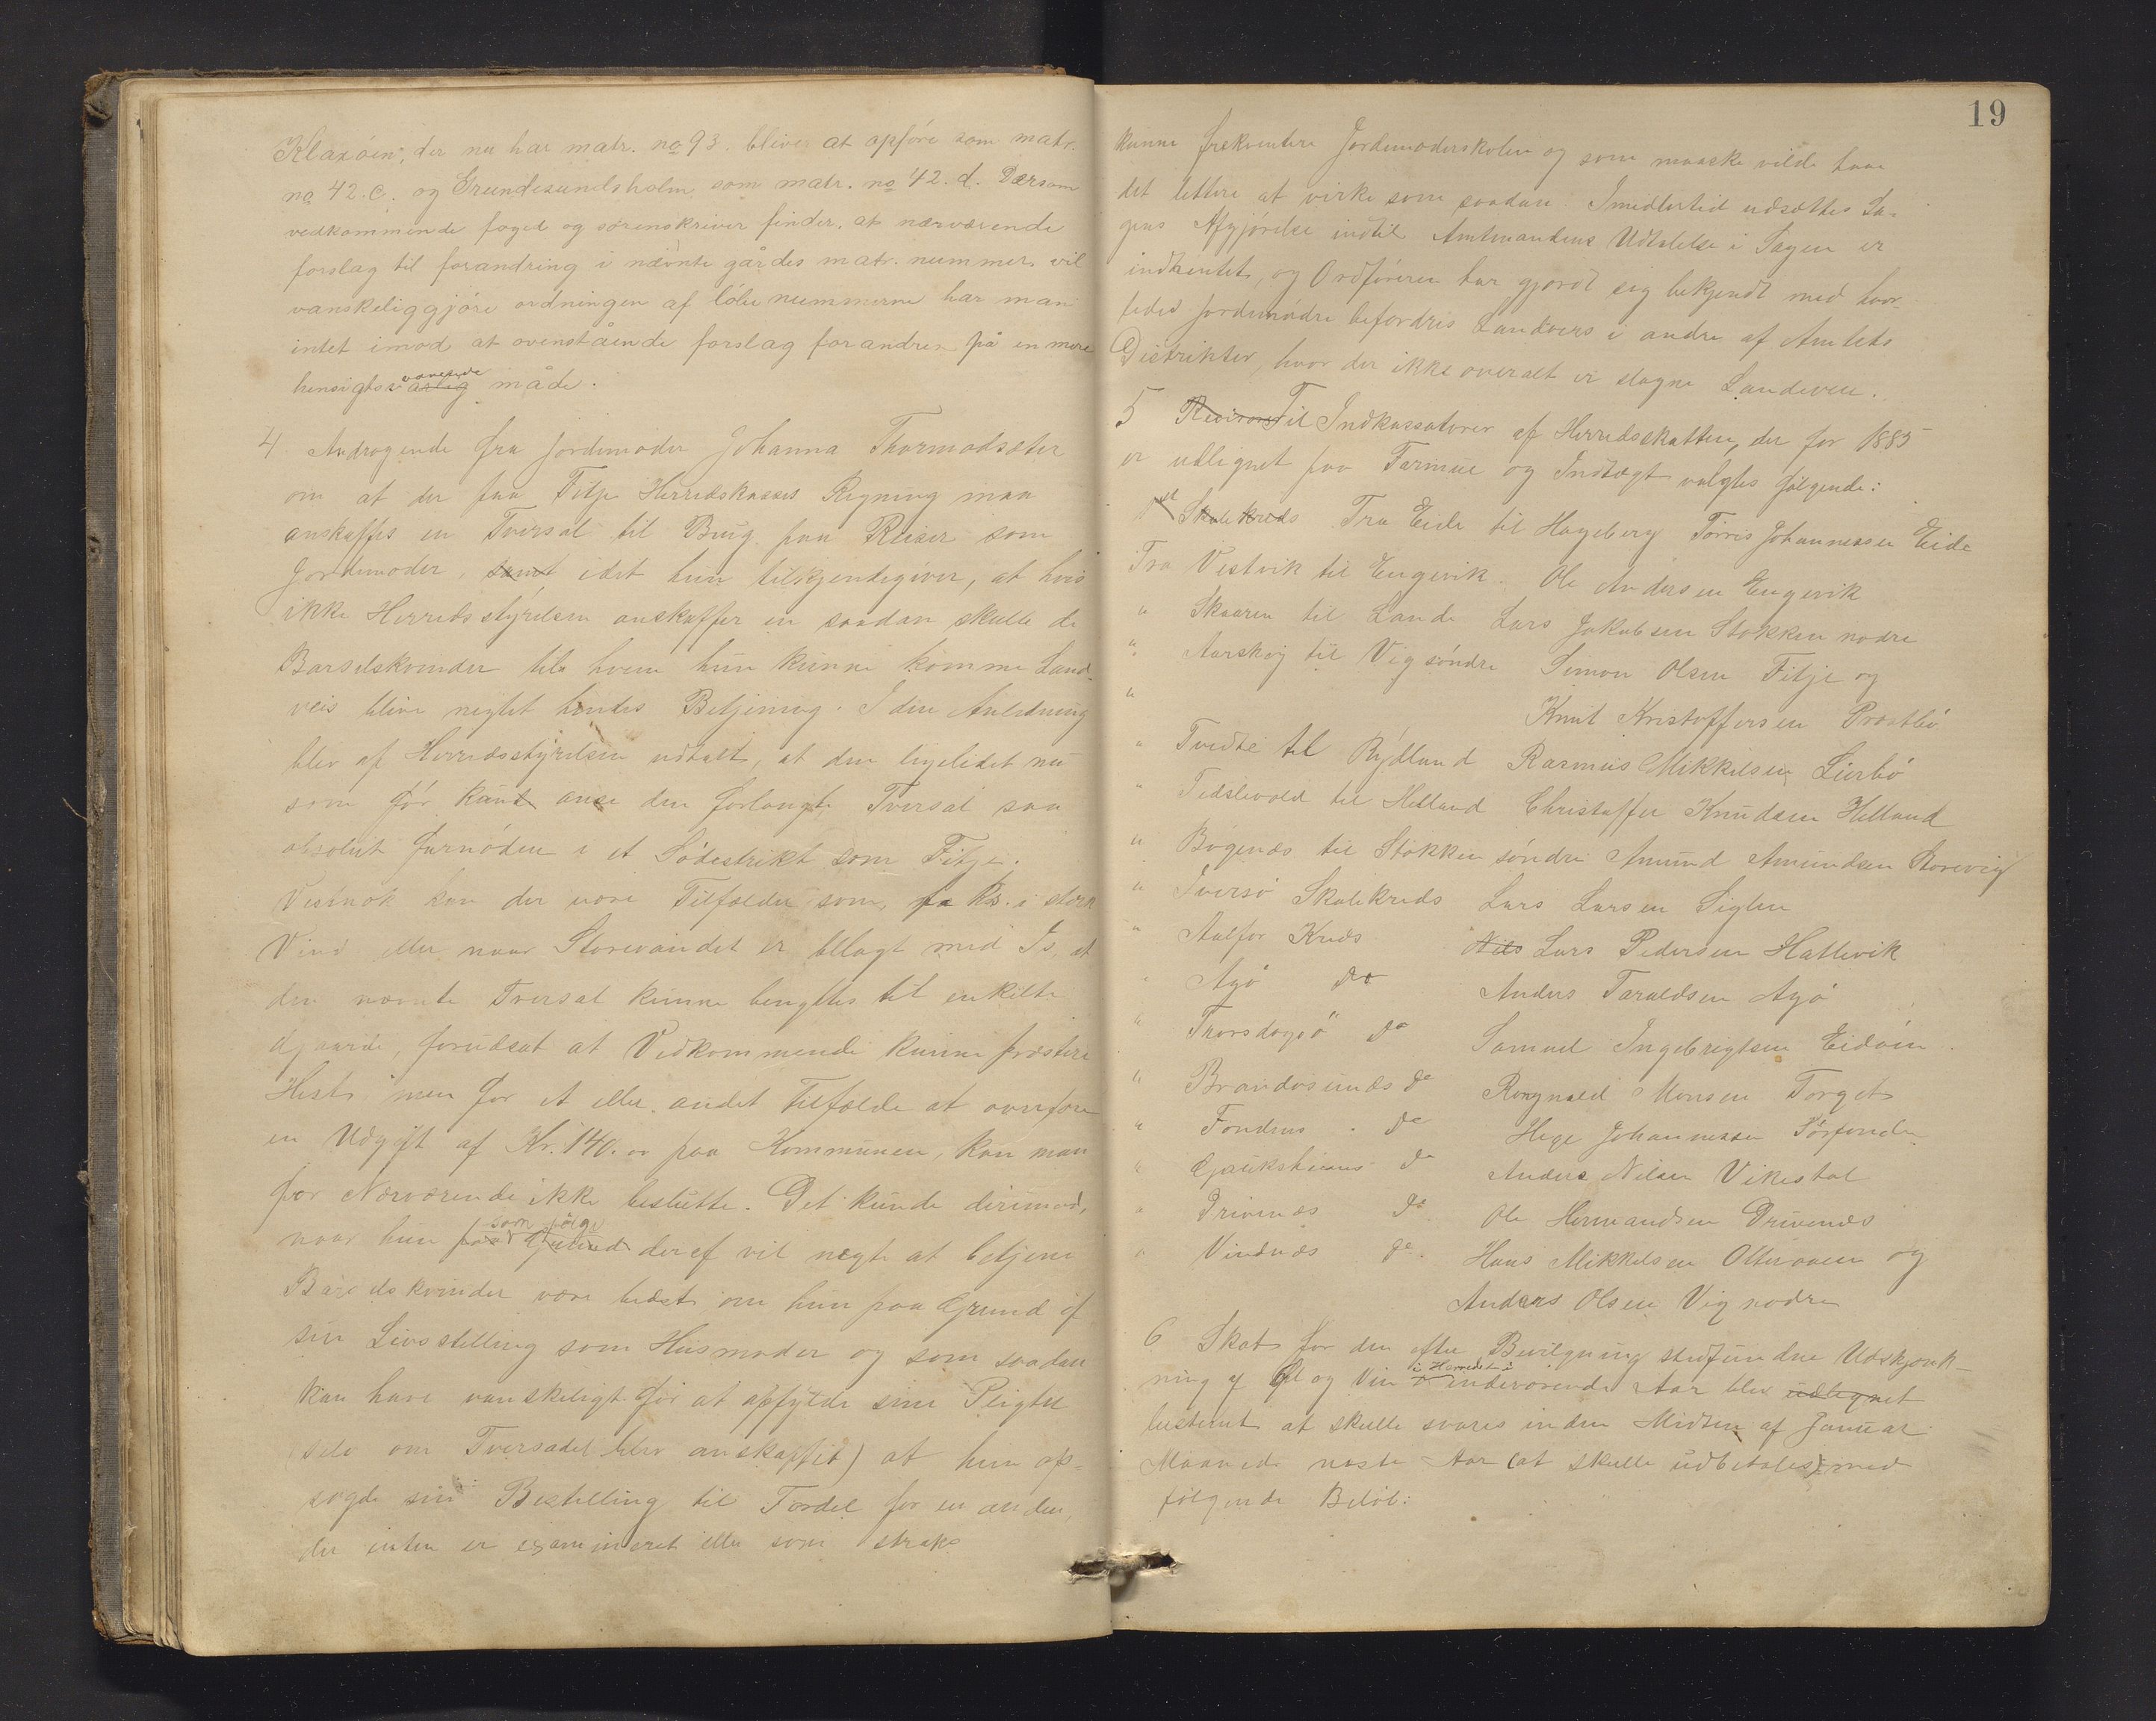 Klaxøen, der nu har matr. no 93. bliver at opføre som matr.
no 42.c. og Grundesundsholm som matr. no 42.d. Dersom
vedkommende foged og sorenskriver finder, at nærværende
forslag til forandring i nævnte gårdes matr. nummer, vil
vanskeliggjøre ordningen af løbenummerne har man
intet imod at ovenstående forslag forandres på en mere
hensigtsvarende måde.
4 Andragende fra Jordemoder Johanna Thormodsæter
om at der paa Fitje Herredskasses Regning maa
anskaffes en Tversal til Brug paa Reiser som
Jordemoder, samt idet hun tilkjendegiver, at hvis
ikke Herredsstyrelsen anskaffer en saadan skulle de
Barselskvinder til hvem hun kunne komme Land-
veis blive negtet hendes Betjening. I den Anledning
blev af Herredsstyrelsen udtalt, at den ligelidet nu
som før kunde anse den forlangte Tversal saa
absolut fornøden i et Sødistrikt som Fitje.
Vistnok kan der være Tilfælder som, fx i stærk
Vind eller naar Storevandet er belagt med Is, at
den nævnte Tversal kunne benyttes til enkelte
Gaarde, forudsat at Vedkommende kunne præstere
Hest men for et eller andet Tilfælde at overføre
en Udgift af Kr. 140.00 paa Kommunen, kan man
for Nærværende ikke beslutte. Det kunde derimod,
naar hun paa Grund som følge deraf vil negte at betjene
Barselskvinder være bedst om hun paa Grund af
sin Livsstilling som Husmoder og som saadan
kan have vanskeligt for at opfylde sine Pligter
selv om Tversadel blev anskaffet) at hun op-
sagde sin Bestilling til Fordel for en anden,
der enten er examineret eller som straks
19
kunne frekventere Jordemoderskolen og som maaske vilde have
det lettere at virke som saadan. Imidlertid udsættes Sa-
gens Afgjørelse indtil Amtmandens Udtalelse i Sagen er
indhentet, og Ordføreren har gjordt sig bekjendt med hvor-
ledes Jordemødre befordres Landveis i andre af Amtets
Distrikter, hvor der ikke overalt er slagne Landeveie.
5 Til Indkassatorer af Herredsskatten, der for 1885
er udlignet paa Formue og Indtægt valgtes følgende:
1st Skolekreds Fra Eide til Hageberg Tørris Johannessen Eide
Fra Vestvik til Engevik. Ole Andersen Engevik
" Skaaren til Lande Lars Jakobsen Stokken nødre
" Aarskog til Vig søndre Simon Olsen Fitje og
" Knut Kristoffersen Præstbø
" Tvedte til Rydland Rasmus Mikkelsen Lierbø
" Tedslevold til Helland Christoffer Knudsen Helland
" Bogenæs til Stokken søndre Amund Amundsen Storevig
" Iversø Skolekreds Lars Larsen Siglen
" Aalfor Kreds Nils Lars Pedersen Hatlevik
" Agø do Anders Taraldsen Agø
" Thorsdagsø do Samuel Ingebrigtsen Eidøen
" Brandøsunds do Rognald Monsen Torget
" Fondnes do Hege Johannessen Sørfonden
" Gaukshiems do Anders Nilsen Vikestøl
" Drivenæs do Ole Hermandsen Drivenæs
" Vindnæs do Hans Mikkelsen Otteraaen og
Anders Olsen Vig nødre
6 Skat for den efter Bevilgning stedfundne Udskjenk-
ning af Øl og Vin i Herredet i indeværende Aar blev udlignet
bestemt at skulle svares inden Midten af Januar
Maaned næste Aar (at skulle udbetales) med
følgende Beløb: